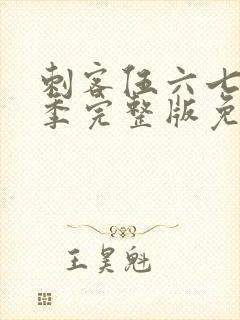 刺客伍六七
季完整版免
王昊魁